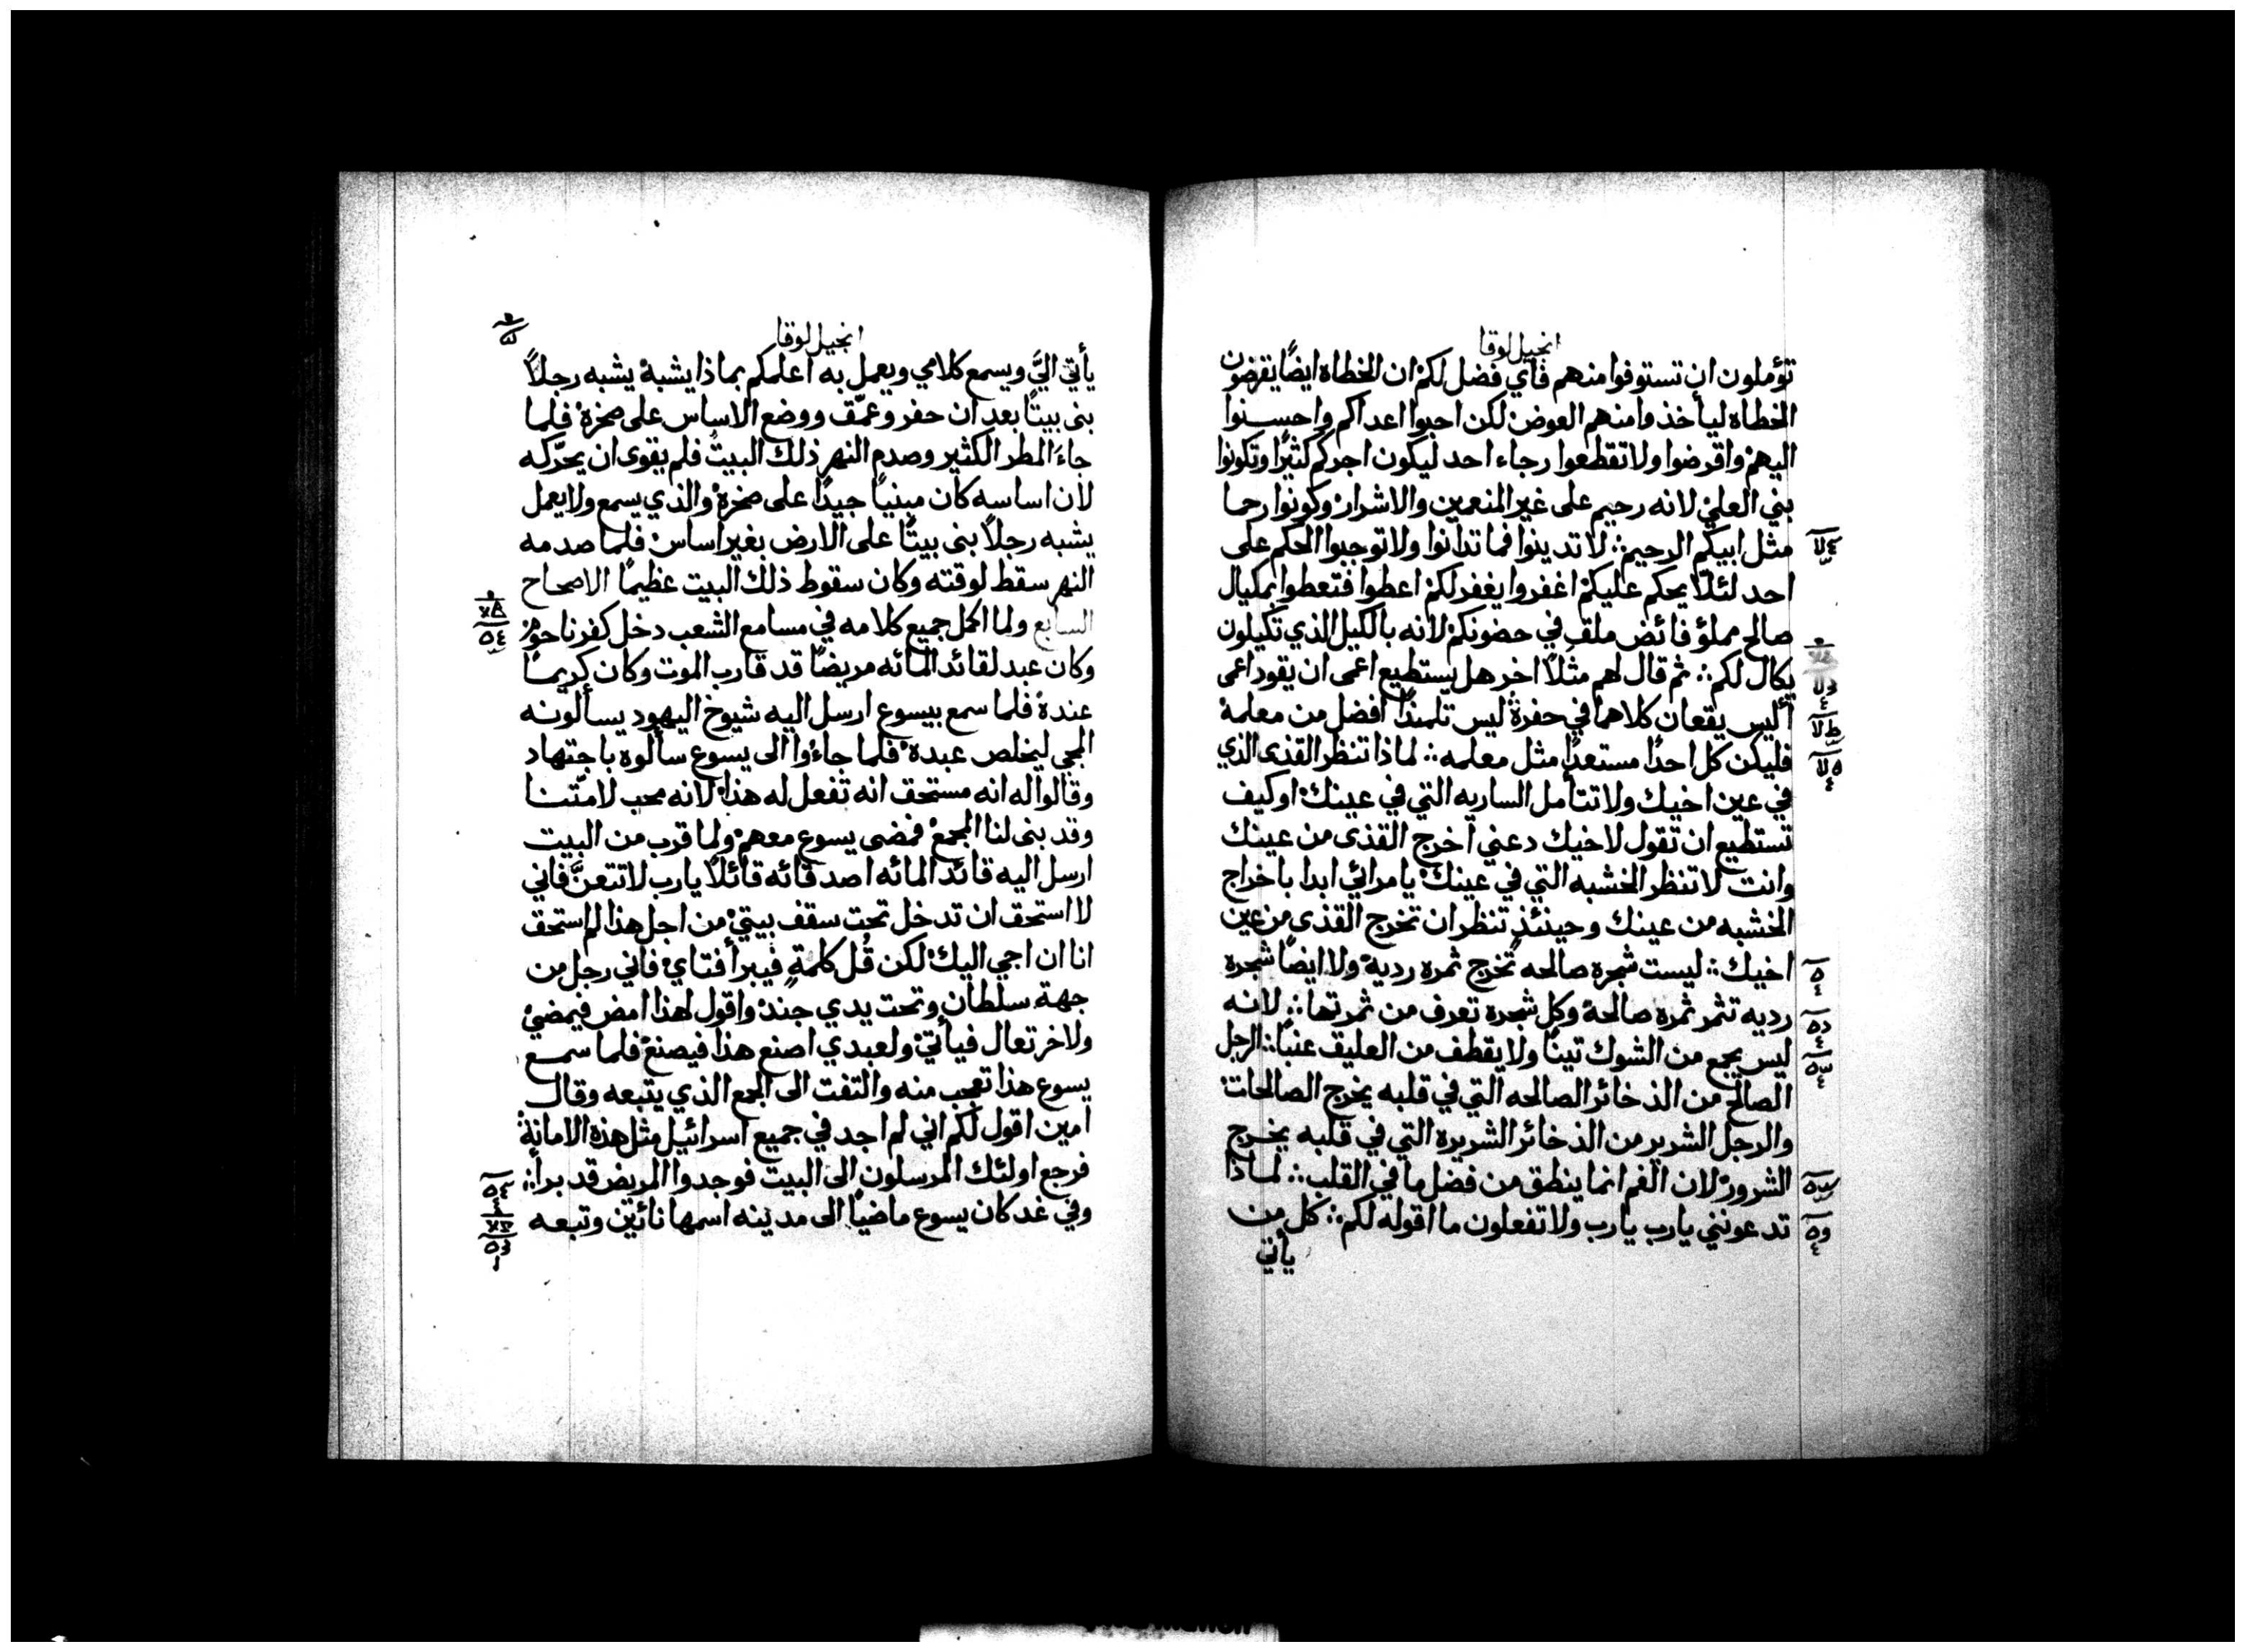 انجيل لوقا
تؤملون ان تستوفوا منهم فأي فضل لكم ان الخطاه ايضًا يقرضون
الخطاه ليأخذوا منهم العوض لكن احبوا اعداكم واحسنوا
اليهم واقرضوا ولا تقطعوا رجاء احد ليكون اجركم كثيرًا وتكونوا
بني العلي لانه رحيم على غير المنعمين والاشرار وكونوا رحما
مثل ابيكم الرحيم ؛ لا تدينوا فما تدانوا ولا توجبوا الحكم على
احد لئلّا يحكم عليكم اغفروا يغفر لكم اعطوا فتعطوا بمكيال
صالح مملؤ فائض ملقٍ في حضونكم لانه بالكيل الذي تكيلون
يكال لكم ؛ ثم قال لهم مثلًا اخر هل يستطيع اعمى ان يقود اعمى
أليس يقعان كلاهما في حفرة ليس تلميذًا افضل من معلمه
فليكن كل احدًا مستعدًا مثل معلمه ؛ لماذا تنظر القذى الذي
في عين اخيك ولا تتأمل الساريه التي في عينك او كيف
تستطيع ان تقول لاخيك دعني اخرج القذى من عينك
وانت لا تنظر الخشبه التي في عينك يا مرائي ابدا باخراج
الخشبه من عينك وحينئذٍ تنظر ان تخرج القذى من عين
اخيك ؛ ليست شجره صالحه تُخرج ثمره رديه ولا ايضًا شجره
رديه تثمر ثمره صالحة وكل شجره تعرف من ثمرتها ؛ لانه
ليس يجمع من الشوك تينًا ولا يقطف من العليق عنبًا ؛ الرجل
الصالح من الذخائر الصالحه التي في قلبه يخرج الصالحات
والرجل الشرير من الذخائر الشريره التي في قلبه يخرج
الشرور لان الفم انما ينطق من فضل ما في القلب ؛ لماذا
تدعونني يارب يارب ولا تفعلون ما اقوله لكم ؛ كل من
يأتي
انجيل لوقا
يأتي اليَّ ويسمع كلامي ويعمل به اعلمكم بماذا يشبه يشبه رجلًا
بنى بيتًا بعد ان حفر وعمّق ووضع الاساس على صخرة فلما
جاءَ المطر الكثير وصدم النهر ذلك البيتُ فلم يقوى ان يحرّكه
لان اساسه كان مبنيًا جيدًا على صخرة والذي يسمع ولا يعمل
يشبه رجلًا بنى بيتًا على الارض بغير اساس فلما صدمه
النهر سقط لوقته وكان سقوط ذلك البيت عظيمًا الاصحاح
السابع ولما اكمل جميع كلامه في مسامع الشعب دخل كفرناحوم
وكان عبد لقائد المائه مريضًا قد قارب الموت وكان كريمًا
عنده فلما سمع بيسوع ارسل اليه شيوخ اليهود يسألونه
المجي ليخلص عبده فلما جاءوا الى يسوع سألوه باجتهاد
وقالوا له انه مستحق انه تفعل له هذا لانه محب لامّتنا
وقد بنى لنا المجمع فمضى يسوع معهم ولما قرب من البيت
ارسل اليه قائد المائه اصدقائه قائلًا يارب لا تتعنَّ فاني
لا استحق ان تدخل تحت سقف بيتي من اجل هذا لم استحق
انا ان اجي اليك لكن قُل كلمةٍ فيبرأ فتاي فاني رجل من
جهة سلطان وتحت يدي جند واقول لهذا امض فيمضي
ولاخر تعال فيأتي ولعبدي اصنع هذا فيصنع فلما سمع
يسوع هذا تعجب منه والتفت الى الجمع الذي يتبعه وقال
امين اقول لكم اني لم اجد في جميع اسرائيل مثل هذه الامانة
فرجع اولئك المرسلون الى البيت فوجدوا المريض قد برأ ؛
وفي غد كان يسوع ماضيًا الى مدينه اسمها نائين وتبعه